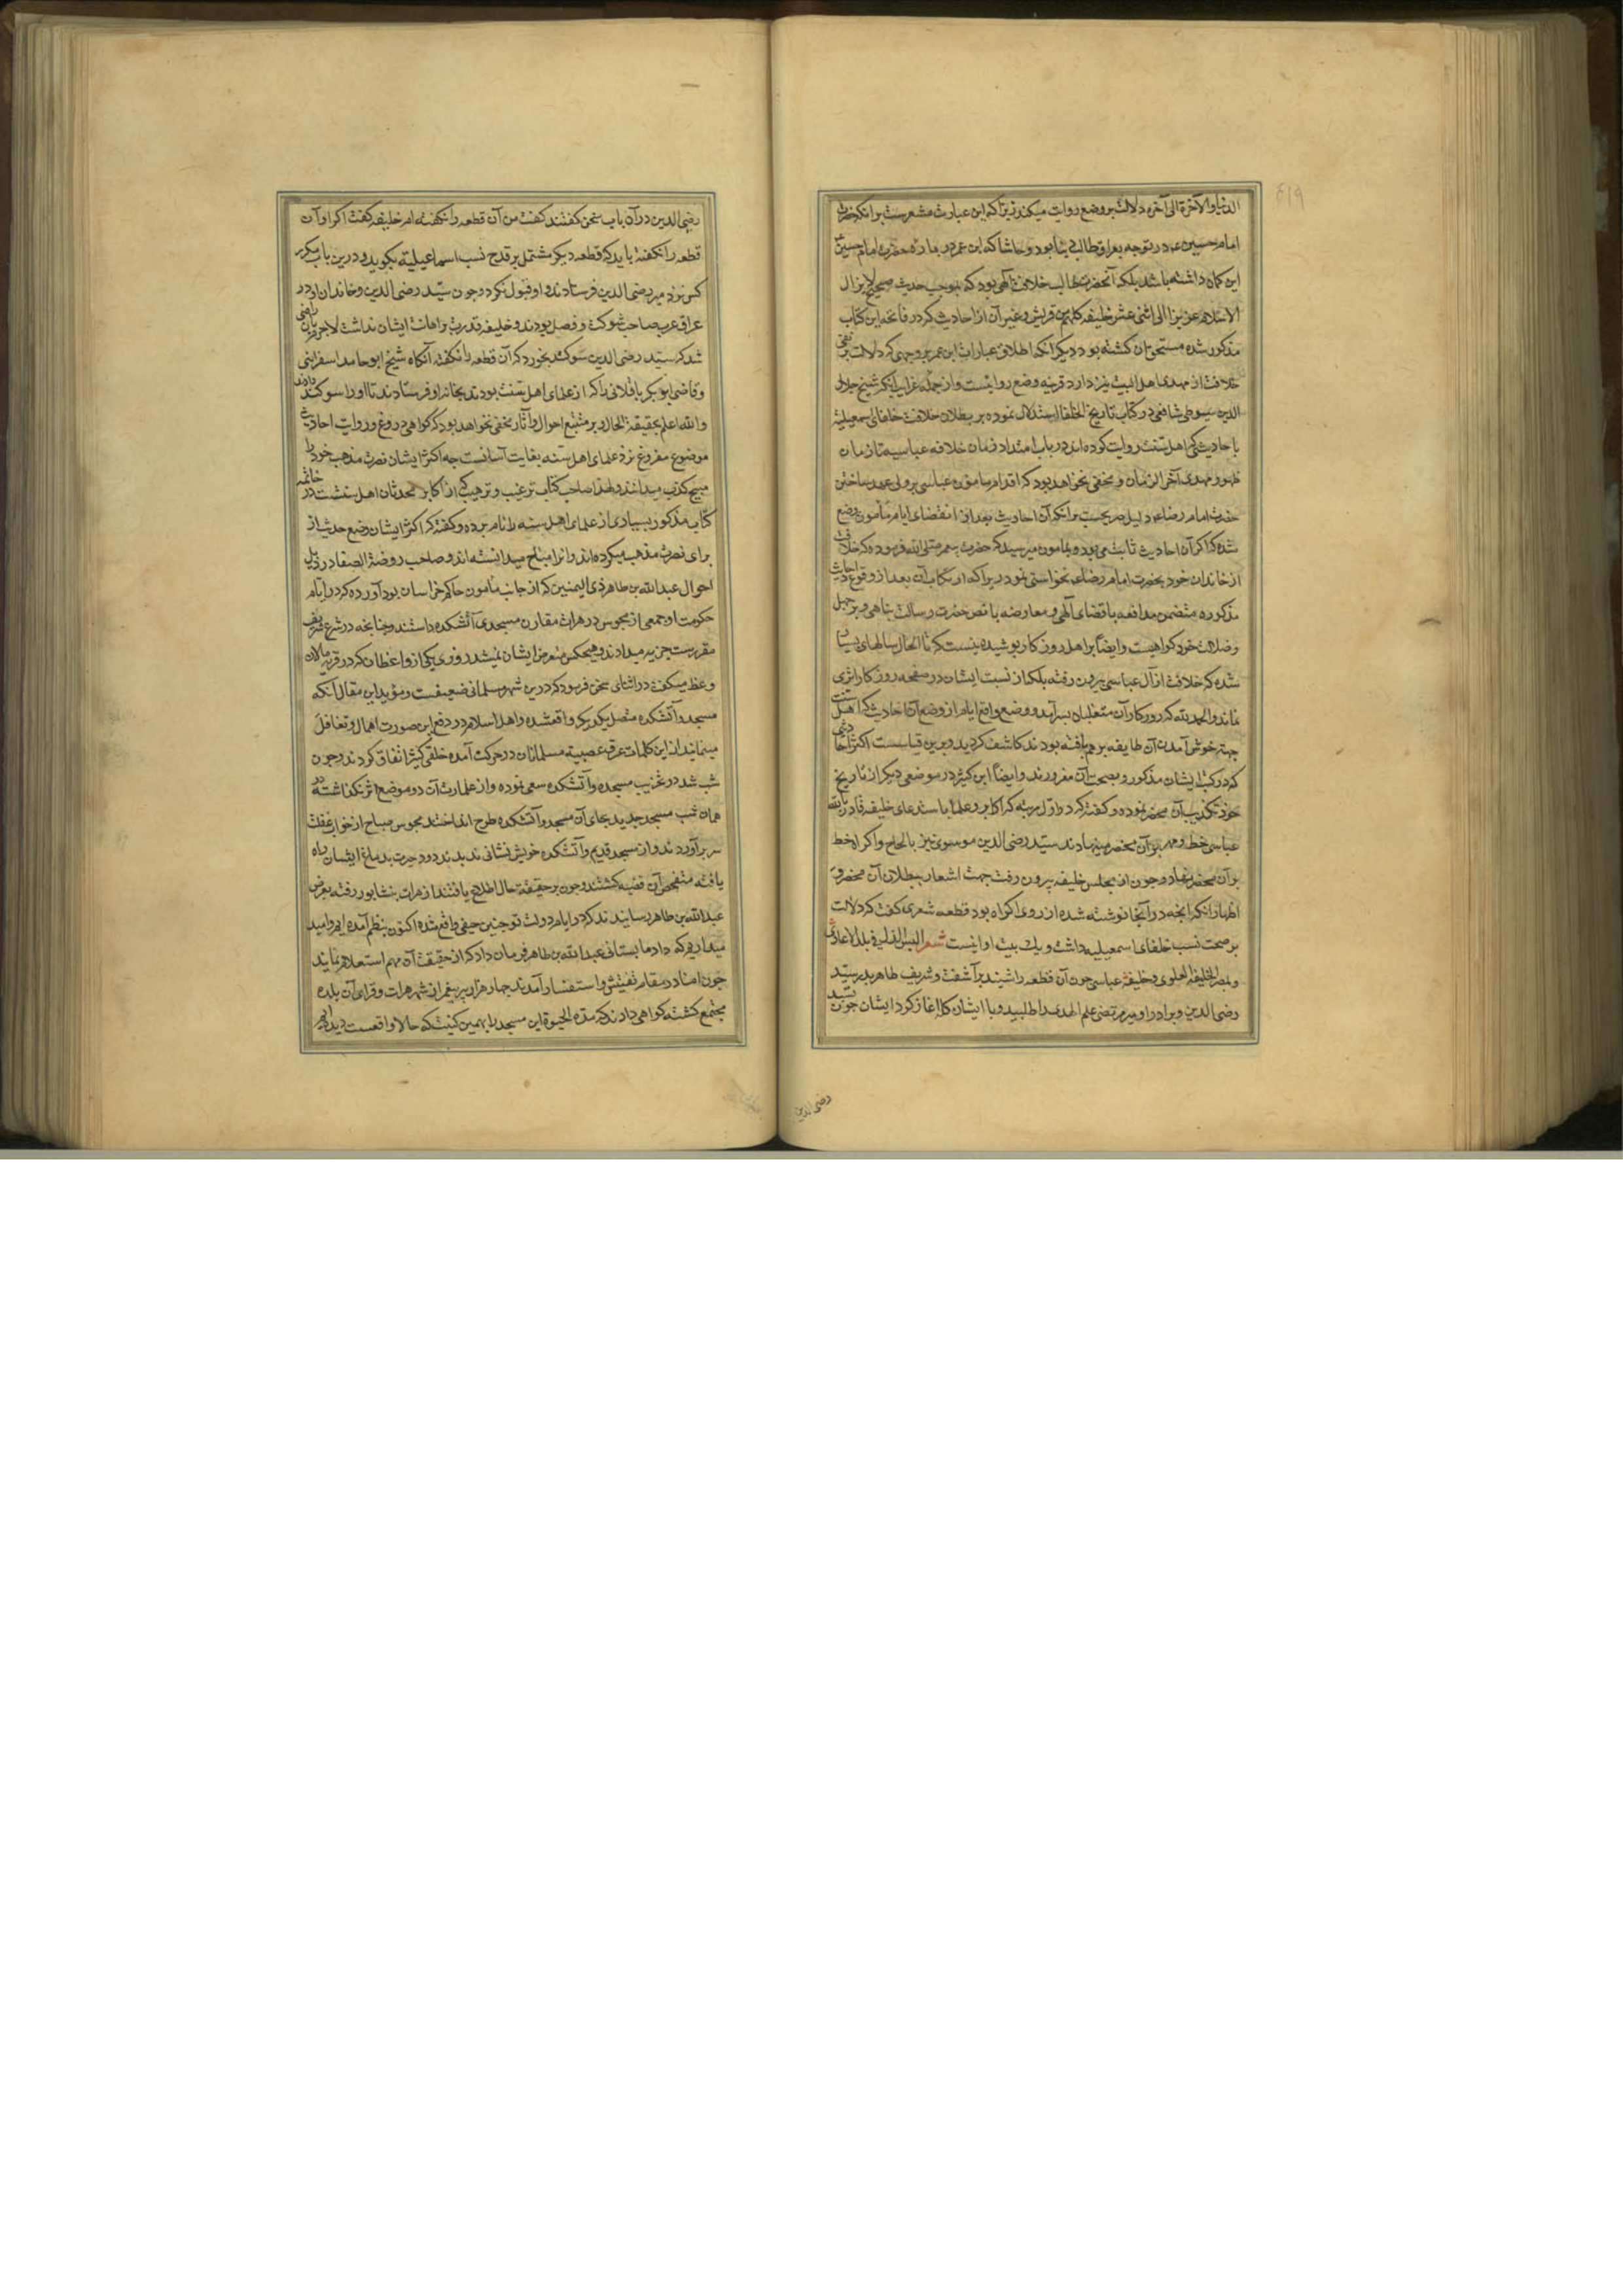 ۴۱۹
الدنیا و الآخرة الی آخره دلالت بر وضع روایت میکند زیرا که این عبارت مشعرست برانکه حضرت
امام حسین ع در توجه بعراق طالب دنیا بود و حاشا که ابن عمر در ماده حضرت امام حسین
این کمان داشته باشد بلکه آنحضرت طالب خلافت الهی بود که بموجب حدیث صحیح لایزال
الاسلام عزیزا الی اثنی عشر خلیفه کلهم من قریش و غیر آن از احادیث که در فاتحه این کتاب
مذکور شده مستحق آن کشته بود و دیکر انکه اطلاق عبارات ابن عمر بر وجهی که دلالت بر نفی
خلافت از مهدی اهل البیت نیز دارد قرینه وضع روایتست و از جمله غرایب انکه شیخ جلال
الدین سیوطی شافعی در کتاب تاریخ الخلفا استدلال نموده بر بطلان خلافت خلفای اسمعیلیه
باحادیثی که اهل سنت روایت کرده اند در باب امتداد زمان خلافه عباسیه تا زمان
ظهور مهدی آخر الزمان و مخفی نخواهد بود که اقدام مامون عباسی بر ولی عهد ساختن
حضرت امام رضا ع دلیل صریحست برانکه آن احادیث بعد از انقضای ایام مأمون وضع
شده که اکر آن احادیث ثابت می بود و بمامون میرسید که حضرت پیغمبر صلی الله فرموده که خلافت
از خاندان خود بحضرت امام رضا ع نخواستی نمود زیرا که ارتکاب آن بعد از وقوع احادیث
مذکوره متضمن مدافعه با قضای الهی و معارضه با نص حضرت رسالت پناهی و بر جهل
و ضلالت خود کواهیست و ایضا بر اهل روزکار پوشیده نیست که تا الحال سالهای بسیار
شده که خلافت از آل عباسی بیرون رفته بلکه از نسبت ایشان در صفحه روزکار اثری
نماند و الحمد لله که روزکار آن متغلبان بسر آمد و وضع واقع ایام از وضع آن احادیث که اهل سنت
جهة خوش آمدن آن طایفه بر هم بافته بودند کاشف کردید و برین قیاسست اکثر احادیثی
که در کتب ایشان مذکور و بصحت آن مغرورند و ایضا ابن کثیر در موضعی دیکر از تاریخ
خود تکذیب آن محضر نموده و کفته که در اول مرتبه که اکابر و علما باستدعای خلیفه قادر بالله
عباسی خط و مهر بر آن محضر مینهادند سید رضی الدین موسوی نیز بالحاح و اکراه خط
بر آن محضر نهاد و چون از مجلس خلیفه بیرون رفت جهت اشعار ببطلان آن محضر و
اظهار انکه انچه در آنجا نوشته شده از روی اکراه بود قطعه شعری کفت که دلالت
بر صحت نسب خلفای اسمعیلیه داشت و یک بیت او اینست شعر البس الذل فی بلاد الاعادی
و بمصر الخلیفة العلوی و خلیفه عباسی چون آن قطعه را شنید برآشفت و شریف طاهر پدر سید
رضی الدین و برادر او میر مرتضی علم الهدی را طلبید و با ایشان کله آغاز کرد ایشان چون بسید
رضی الدین
رضی الدین در آن باب سخن کفتند کفت من آن قطعه را نکفته ام خلیفه کفت اکر او آن
قطعه را نکفته باید که قطعه دیکر مشتمل بر قدح نسب اسماعیلیه بکوید و درین باب مکرر
کس نزد میر رضی الدین فرستادند و او قبول نکرد و چون سید رضی الدین و خاندان او در
عراق عرب صاحب شوکت و فضل بودند و خلیفه قدرت بر اهانت ایشان نداشت لاجرم بآن راضی
شد که سید رضی الدین سوکند بخورد که آن قطعه را نکفته آنکاه شیخ ابو حامد اسفراینی
و قاضی ابو بکر باقلانی را که از علمای اهل سنت بودند بخانه او فرستادند تا او را سوکند دادند
و الله اعلم بحقیقة الحال و بر متتبع احوال و آثار مخفی نخواهد بود که کواهی دروغ و روایت احادیث
موضوع مفروغ نزد علمای اهل سنه بغایت آسانست چه اکثر ایشان نصرت مذهب خود را
مبیح کذب میدانند و لهذا صاحب کتاب ترغیب و ترهیب که از اکابر محدثان اهل سنتست در خاتمه
کتاب مذکور بسیاری از علمای اهل سنه را نام برده و کفته که اکثر ایشان وضع حدیث از
برای نصرت مذهب میکرده اند و آنرا مباح میدانسته اند و صاحب روضة الصفا در ذیل
احوال عبدالله بن طاهر ذی الیمینین که از جانب مأمون حاکم خراسان بود آورده که در ایام
حکومت او جمعی از مجوس در هرات مقارن مسجدی آتشکده داشتند و چنانچه در شرع شریف
مقررست جزیه میدادند و هیچکس متعرض ایشان نمیشد روزی یکی از واعظان که در قریه مالان
وعظ میکفت در اثنای سخن فرمود که درین شهر مسلمانی ضعیفست و مؤید این مقال آنکه
مسجد و آتشکده متصل یکدیکر واقعشده و اهل اسلام در دفع این صورت اهمال و تغافل
مینمایند از این کلمات عرق عصبیه مسلمانان در حرکت آمده خلقی کثیر اتفاق کردند و چون
شب شد در تخریب مسجد و آتشکده سعی نموده و از عمارت آن دو موضع اثر نکذاشته در
همان شب مسجد جدید بجای آن مسجد و آتشکده طرح انداختند مجوس صباح از خواب غفلت
سر برآوردند و از مسجد قدیم و آتشکده خویش نشانی ندیدند دود حیرت بدماغ ایشان راه
یافته متفحص آن قضیه کشتند و چون بر حقیقة حال اطلاع یافتند از هرات بنشابور رفته بعرض
عبدالله بن طاهر رسانیدند که در ایام دولت تو چنین حیفی واقع شده اکنون بتظلم آمده ایم و امید
میداریم که داد ما بستانی عبدالله بن طاهر فرمان داد که از حقیقت آن مهم استعلام نمایند
چون امنا در مقام تفتیش و استفسار آمدند چهار هزار پیر معمر از شهر هرات و قرای آن بلده
مجتمع کشته کواهی دادند که مدة الحیوة این مسجد را بهمین کیفیت که حالا واقعست دیده ایم